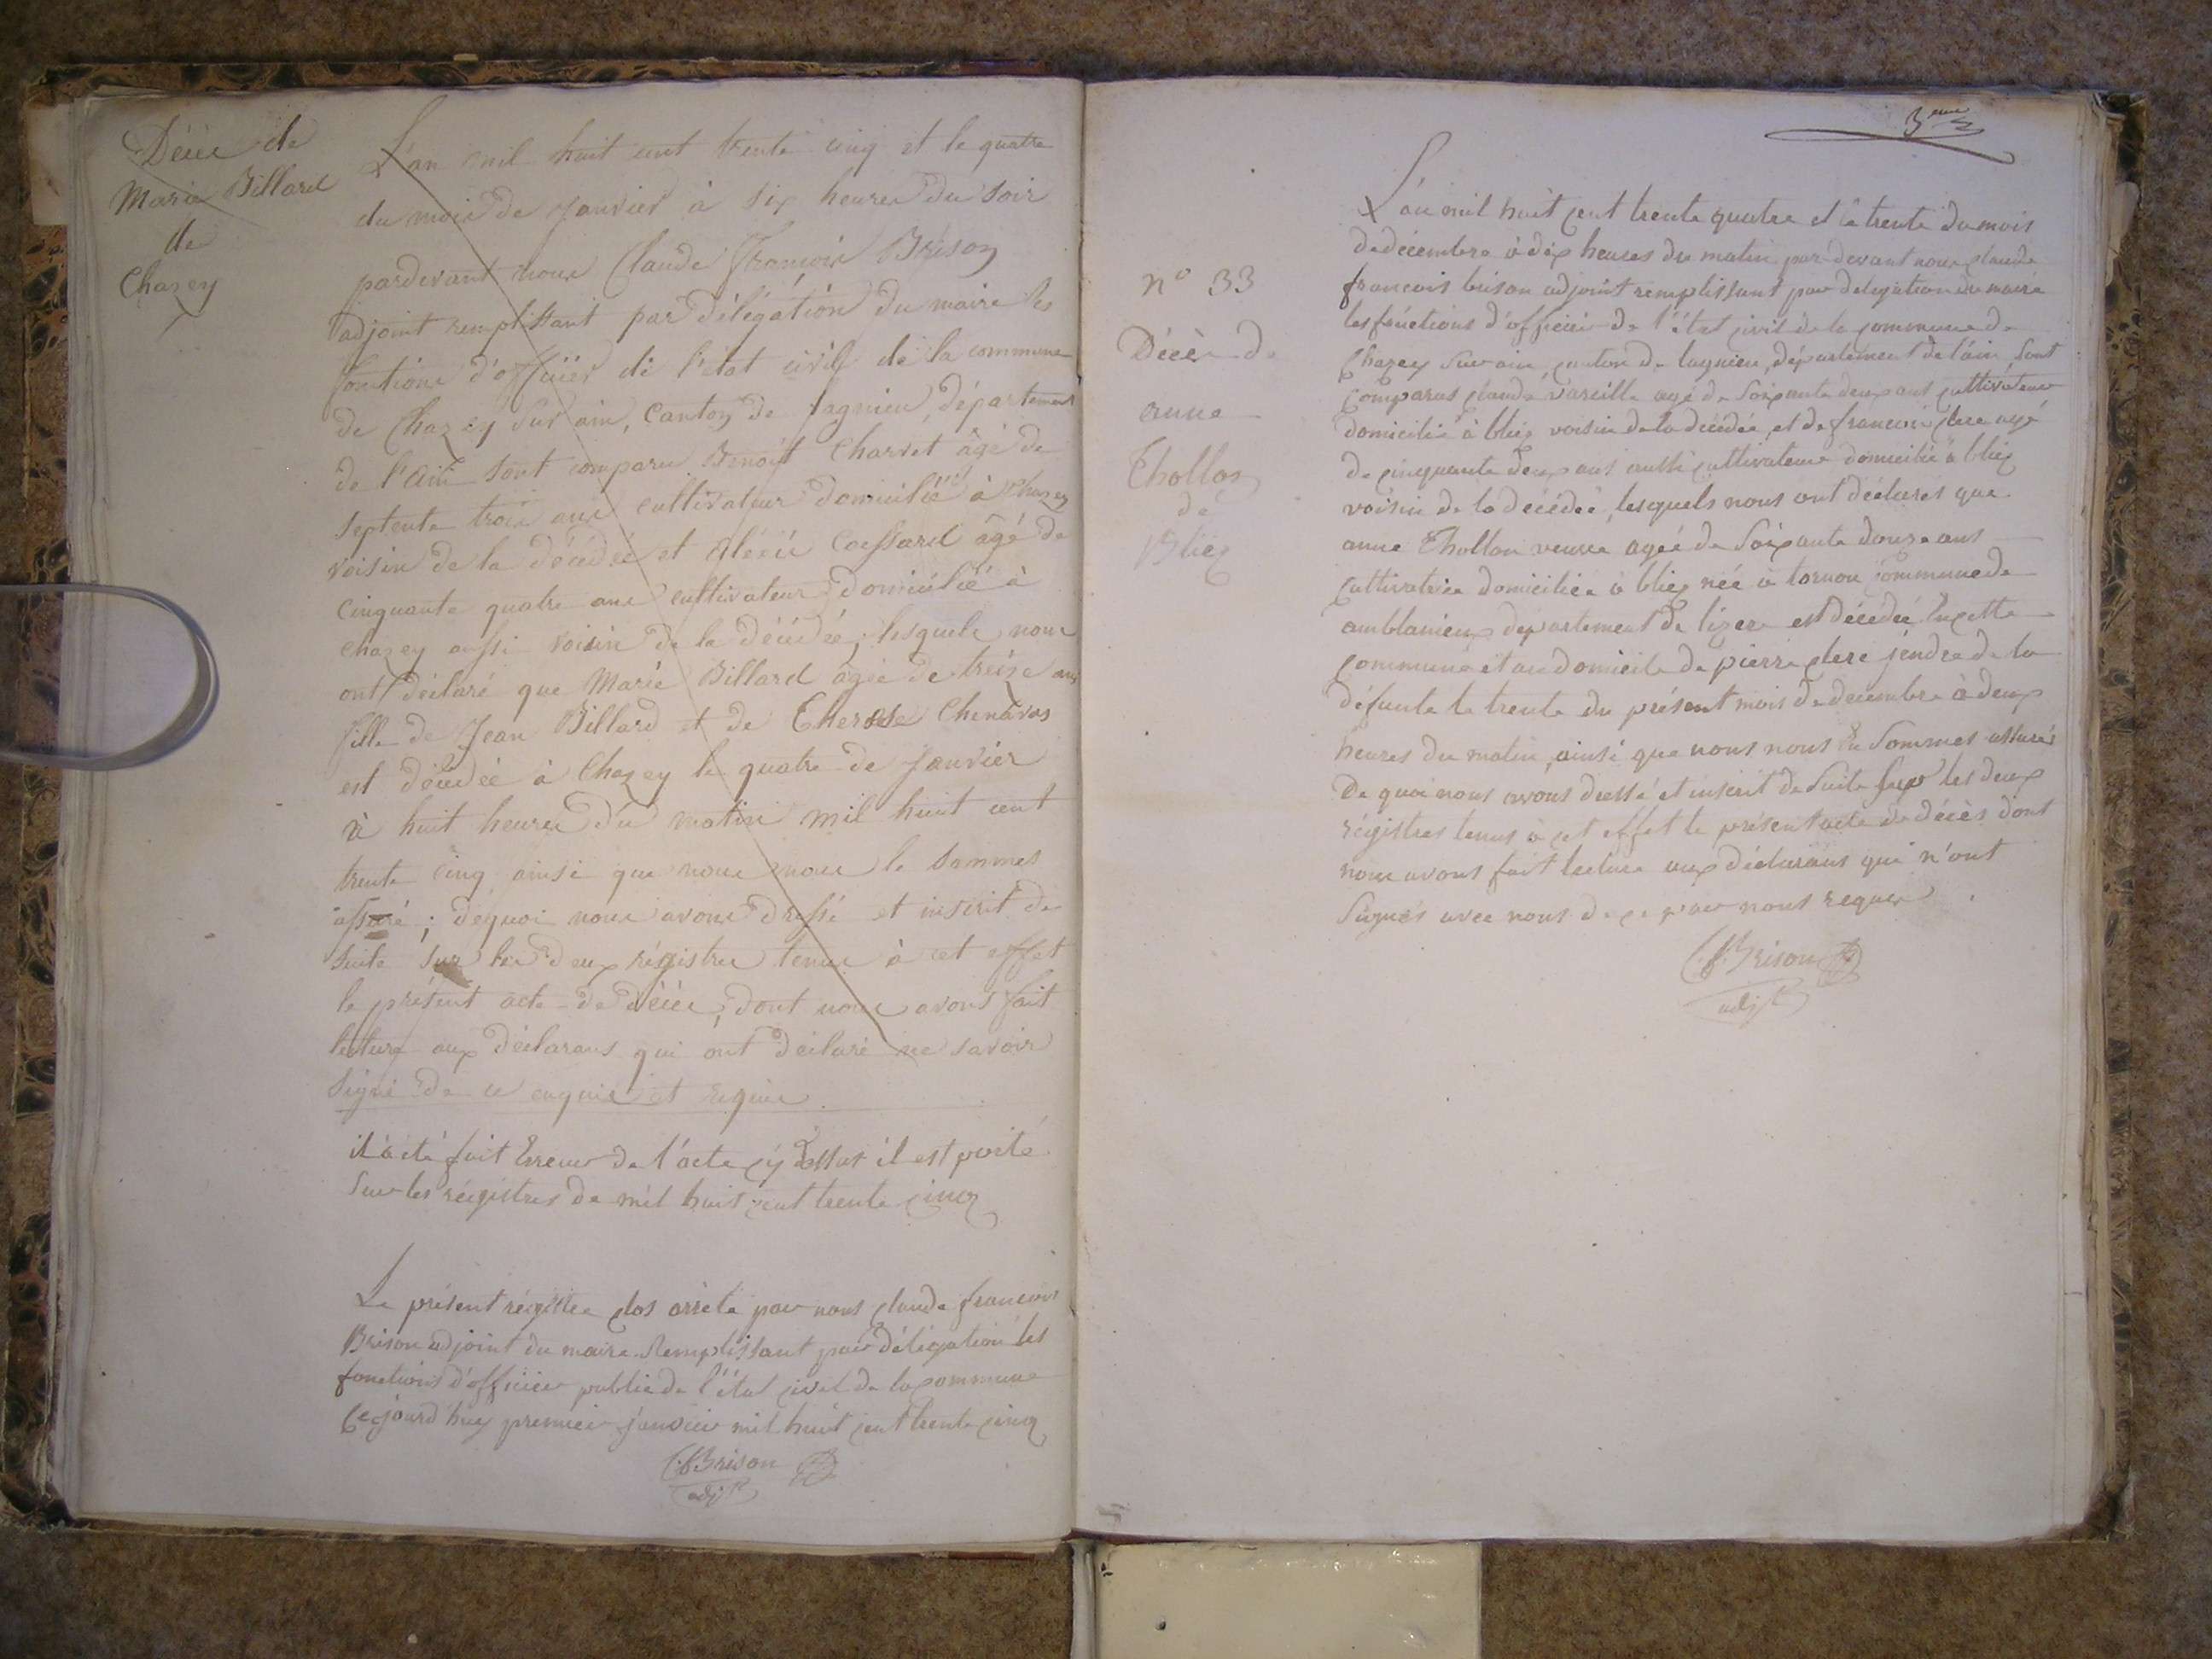 Décès de
Marie Billard
de
Chazey
L'an mil huit cent trente cinq et le quatre
du mois de Janvier à six heures du soir
pardevant nous Claude François Brison
adjoint remplissant par délégation du maire les
fonctions d'officier de l'état civil de la commune
de Chazey sur ain, Canton de lagnieu, département
de l'ain sont comparu Benoît Charvet âgé de
septente trois ans cultivateur domicilié à Chazey
voisin de la décédée et Alexis Coessard âgé de
cinquante quatre ans cultivateur domicilié à
chazey aussi voisin de la décédée, lesquels nous
ont déclaré que Marie Billard âgée de treize ans
fille de Jean Billard et de Therese Chenavas
est décédée à Chazey le quatre de Janvier
à huit heures du matin mil huit cent
trente cinq ainsi que nous nous le sommes
assuré ; dequoi nous avons dressé et inscrit de
suite sur les deux régistres tenus à cet effet
le présent acte de décès, dont nous avons fait
lecture aux déclarans qui ont déclaré ne savoir
signé de ce enquis et requis
il à été fait Erreur de l'acte cy dessus il est porté
Sur les régistres de mil huit cent trente cinq
Le présent régistre clos arrêté par nous claude francois
Brison adjoint du maire Remplissant par délégation les
fonctions d'officier public de l'état civil de la commune
Cejourd'huy premier janvier mil huit cent trente cinq
C.f. Brison
adjt
3eme
n° 33
Décès de
anne
Thollon
de
Bliez
L'an mil huit cent trente quatre et le trente du mois
de décembre à dix heures du matin par devant nous claude
francois brison adjoint remplissant par delegation du maire
les fonctions d'officier de l'état civil de la commune de
Chazey Sur ain, canton de lagnieu, département de l'ain Sont
Comparus claude vareille agé de Soixante deux ans cultivateur
domicilié à bliez voisin de la décédée, et de francois clere agé
de cinquante deux ans aussi cultivateur domicilié à bliez
voisin de la décédée, lesquels nous ont déclarés que
anne Thollon veuve agée de Soixante douze ans
cultivatrice domiciliée à bliez née à tornou commune de
amblanieux département de lizere est décédée En cette
commune et au domicile de pierre clere jendre de la
défunte le trente du présent mois de decembre à deux
heures du matin, ainsi que nous nous En Sommes assurés
De quoi nous avons dressé et inscrit de Suite Sur les deux
régistres tenus à cet effet le présent acte de décès dont
nous avons fait lecture aux déclarans qui n'ont
Signés avec nous de ce par nous requis
C.f. Brison
adjt